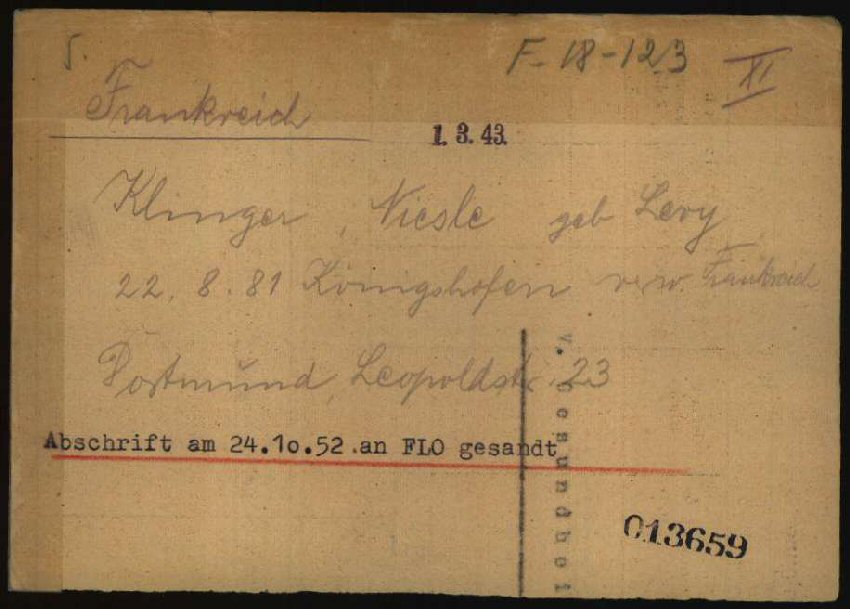 5.
F-18-123
XI
Frankreich
1. 3. 43.
Klinger, Niesle geb Levy
22. 8. 81 Königshofen verw. Frankreich
Dortmund, Leopoldstr. 23
Abschrift am 24.10.52 an FLO gesandt
013659